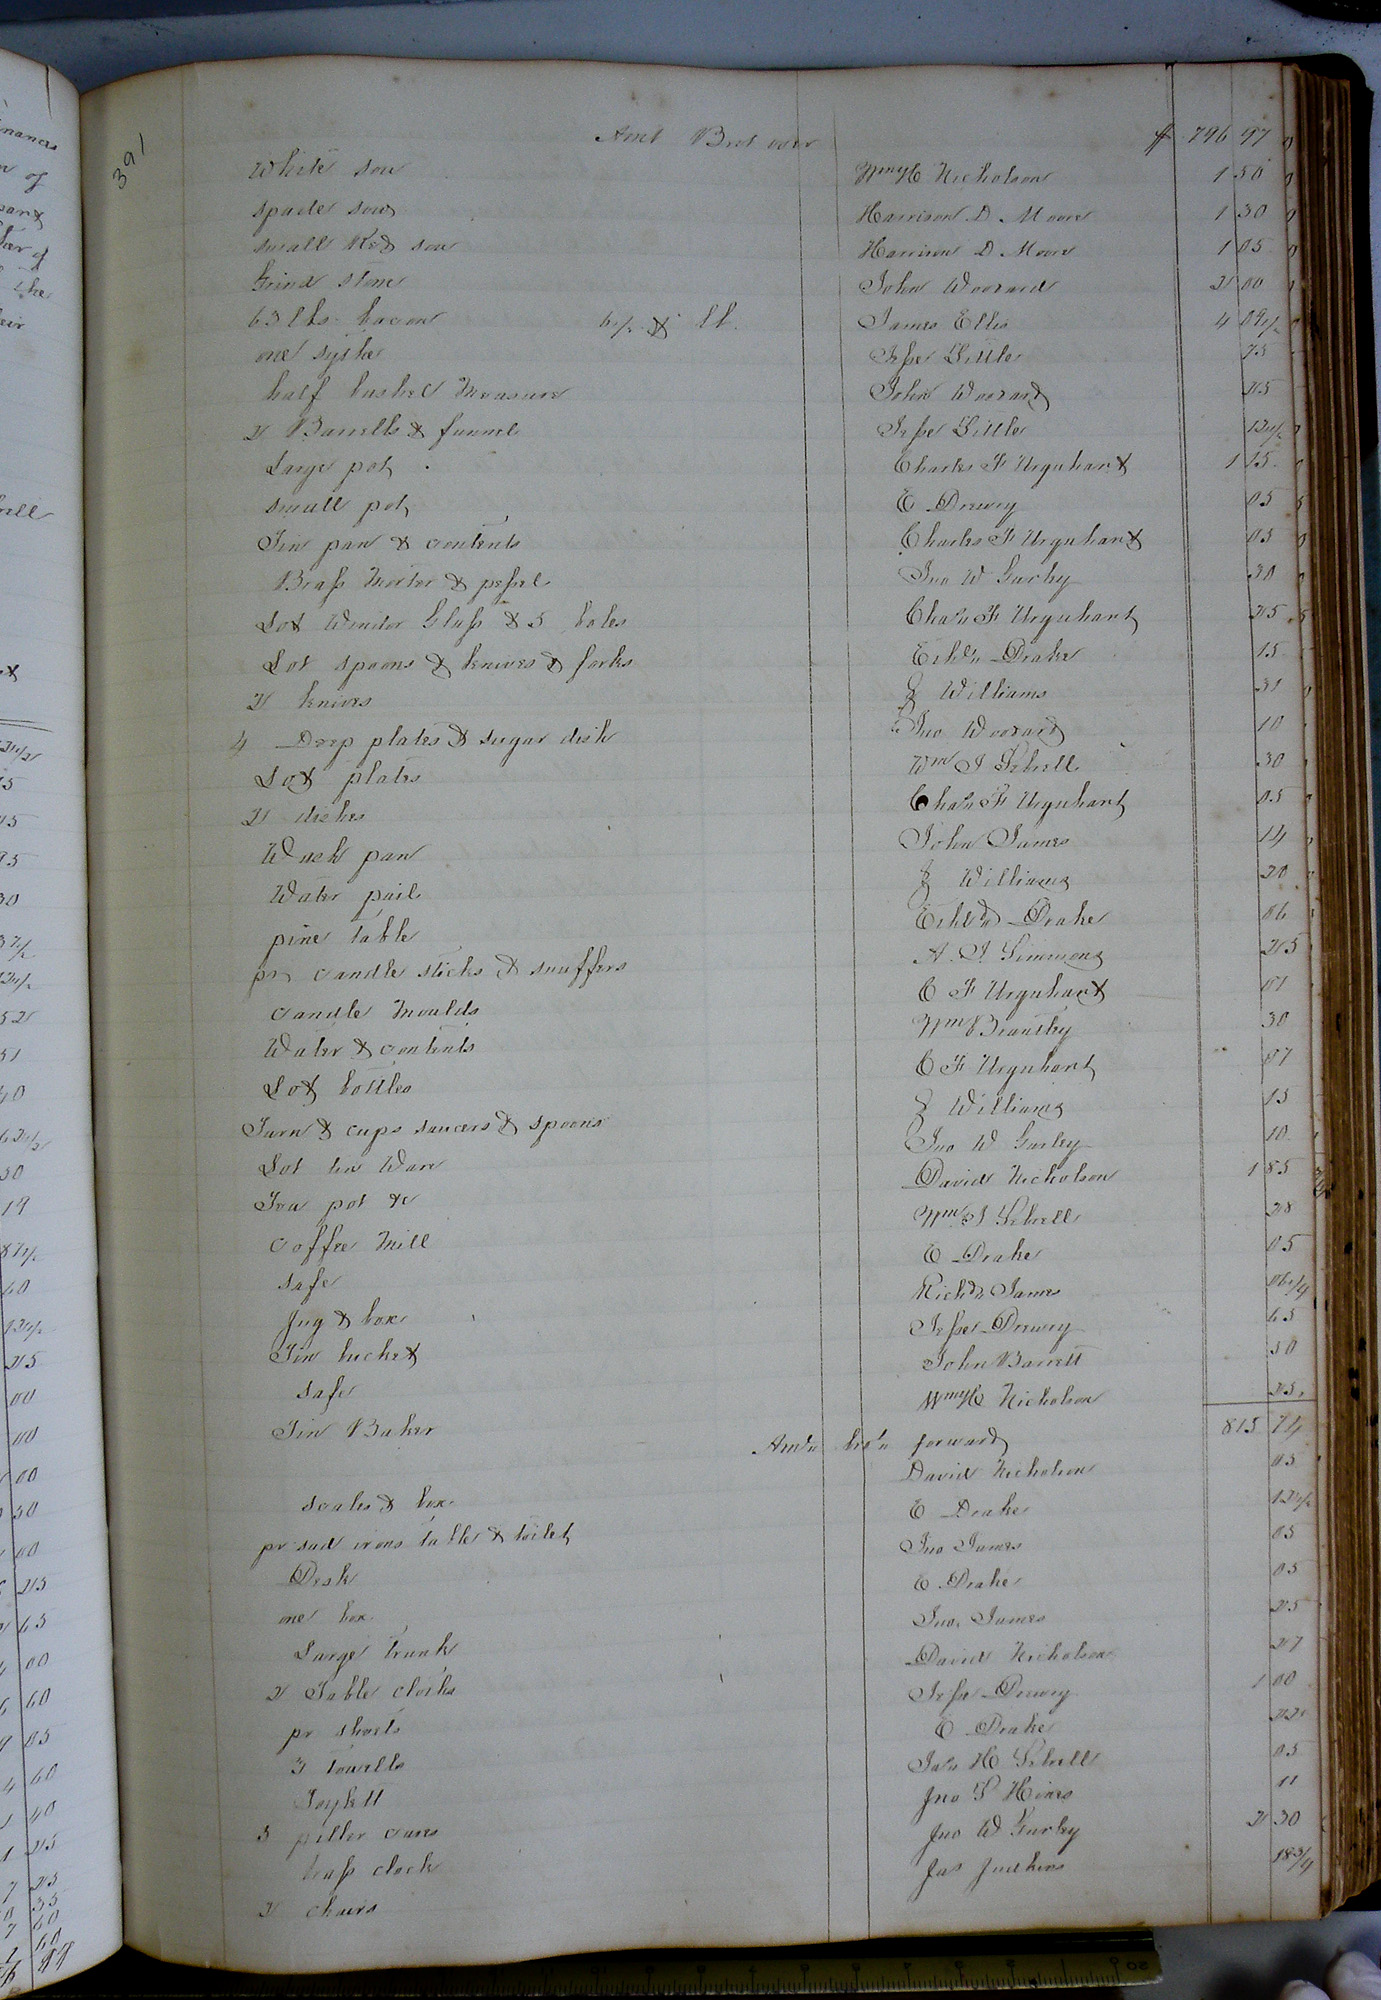 391
Amt Brot over $ 796 97
White sow Wm H Nicholson 1 50
spade sow Harrison D. Moore 1 30
small Red sow Harrison D. Moore 1 05
Grind stone John Woorard 2 00
63 lbs bacon 6½ lb. James Ellis 4 09½
one sythe Jesse Little 75
half bushel Measure John Woorard 25
2 Barrells & funnel Jesse Little 12½
Large pot Charles F Urquhart 1 15
small pot E Drewry 05
Tin pan & contents Charles F Urquhart 05
Brass Morter & pessel Jno W Gurley 30
Lot Winder Glass & 5 boles Chas F Urquhart 25
Lot spoons & knives & forks Drake 15
2 knives J Williams 31
4 Deep plates & sugar dish Jno Woorard 10
Lot plates Wm J Sebrell 30
2 dishes Chas F Urquhart 05
Wash pan John James 14
Water pail J Williams 20
pine table Drake 06
pr candle sticks & snuffers A. J. Simmons 25
candle Moulds C F Urquhart 01
Water & contents Wm Brantley 30
Lot bottles C F Urquhart 07
Turn & cups saucers & spoons J Williams 15
Lot tin Ware Jno W Gurley 10
Tea pot &c David Nicholson 1 85
coffee Mill Wm J Sebrell 28
safe E Drake 05
Jug & box Richd James 06¼
Tin bucket Jesse Drewry 65
safe John Barrett 50
Tin Baker Wm H Nicholson 25
Amt bro't forward 815 74
scales & box David Nicholson 05
pr sad irons table & toilet E Drake 12½
Desk Jno James 05
one box E Drake 05
Large trunk Jno. James 25
2 Table cloths David Nicholson 27
pr sheets Jesse Drewry 1 00
3 towells E Drake 22
Toylett Jas H Sebrell 05
3 piller cases Jno S Hines 11
brass clock Jno W Gurley 2 30
2 chairs Jas Judkins 18¾